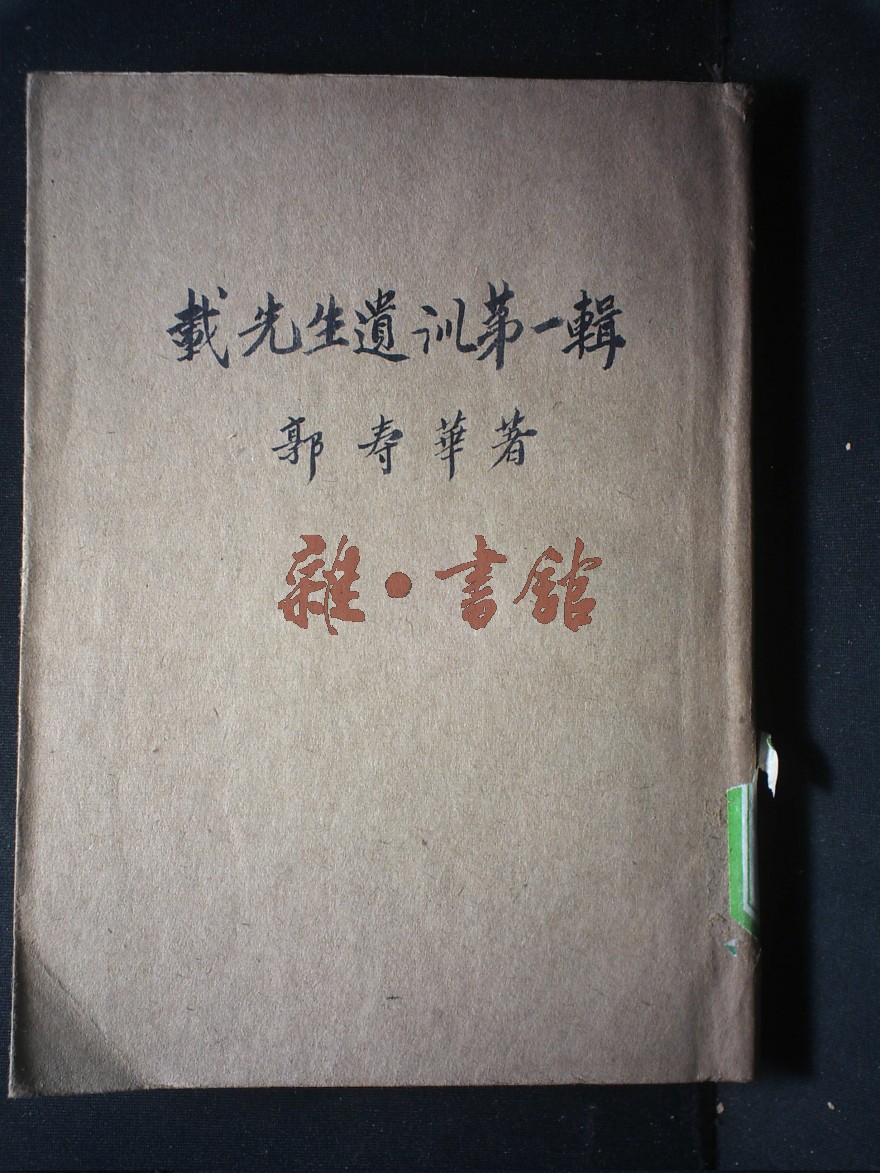 載先生遺训第一輯
郭寿華著
雜·書館